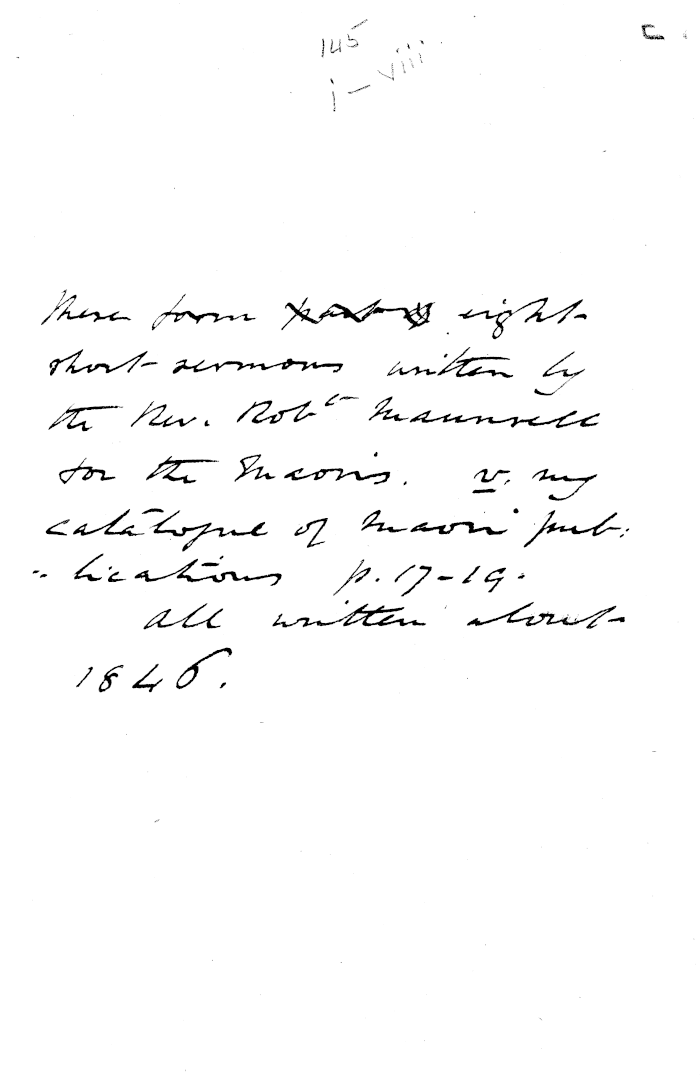 145
i – viii
C
These form ~~part of~~ eight
short sermons written by
the Rev. Robt Maunsell
for the Maoris. v. my
catalogue of Maori pub:
- lications p. 17-19.
All written about
1846.